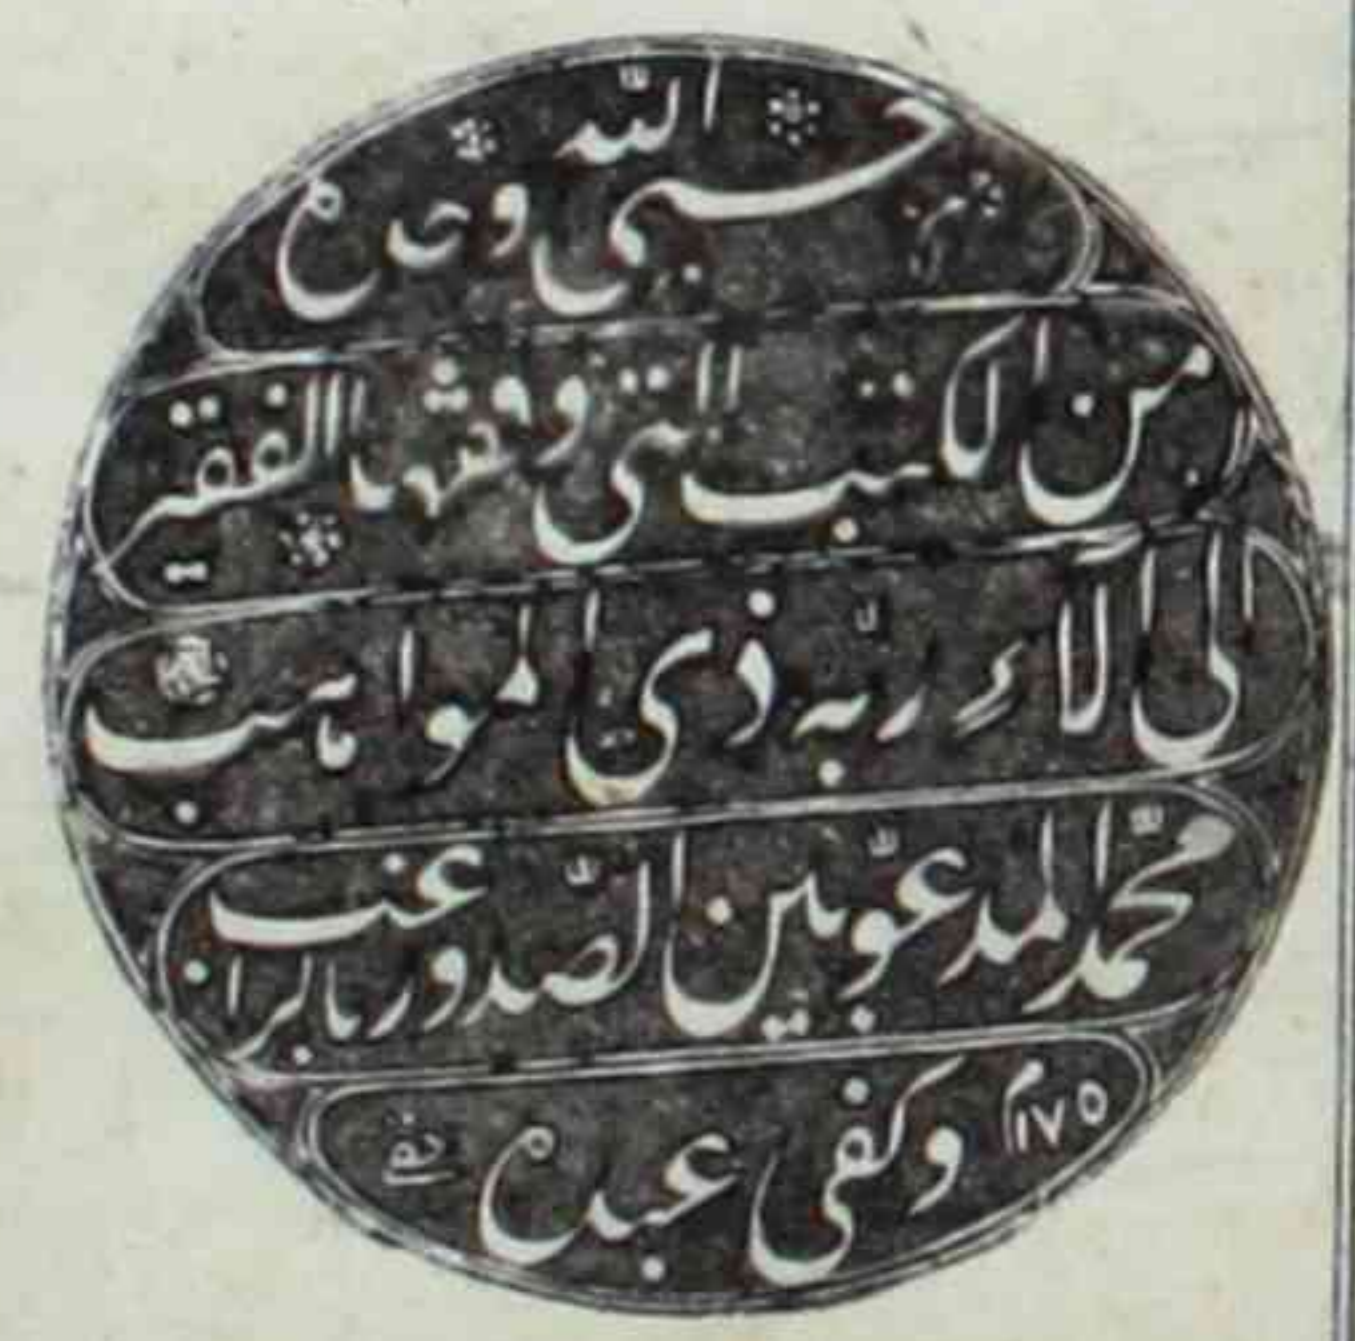 حسبى الله وحده
من الكتب التى وقفها الفقير
الى آلاء ربّه ذى المواهب
محمّد المدعوّ بين الصّدور بالراغب
وكفى عبده ١١٧٥